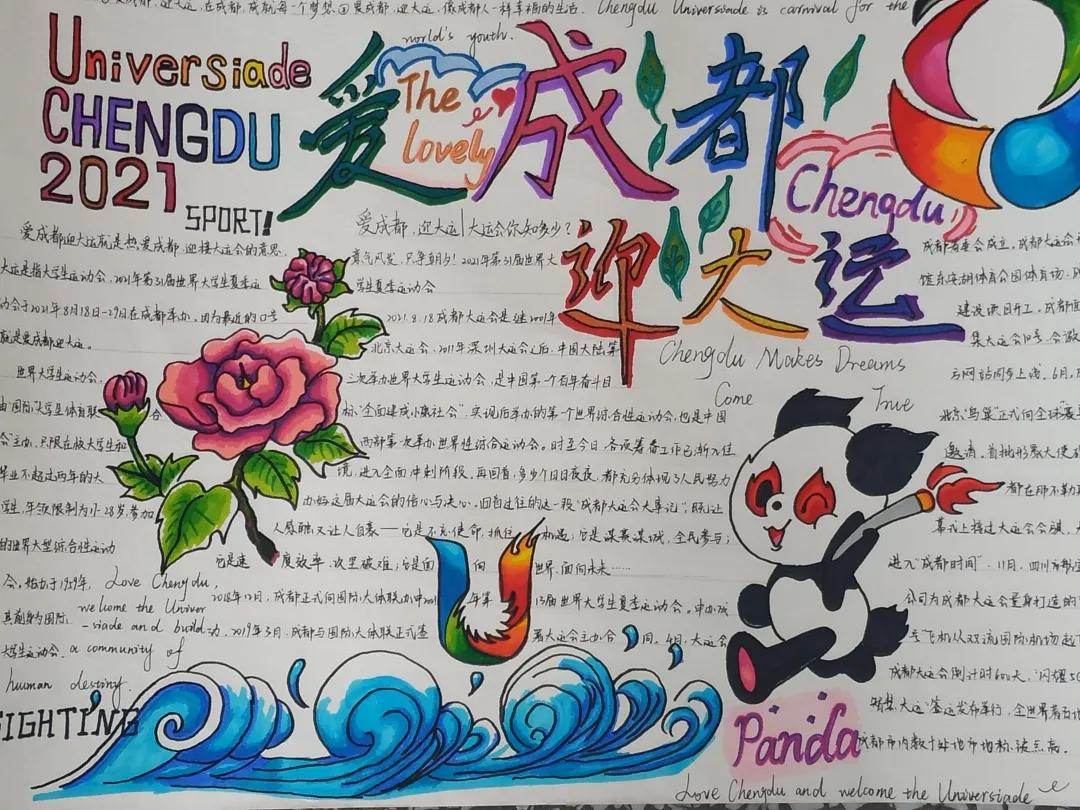 爱成都,迎大运,在成都,成就每一个梦想。④爱成都,迎大运,像成都人一样幸福的生活. Chengdu Universiade is carnival for the
world's youth.
Universiade
CHENGDU
2021
SPORT!
爱成都
The
lovely
Chengdu
迎大运
Chengdu Makes Dreams
Come True
爱成都迎大运就是热爱成都,迎接大运会的意思.
大运是指大学生运动会,2021年第31届世界大学生夏季运
动会于2021年8月18日-29日在成都举办。因为最近的口号
就是爱成都迎大运。
世界大学生运动会,
由"国际大学生体育联合
会"主办,只限在校大学生和
毕业不超过两年的大
学生,年龄限制为17-28岁,参加
的世界大型综合性运动
会。始办于1959年,
其前身为国际
大学生运动会.
Love Chengdu,
welcome the Univer
-siade and build
a community of
human destiny.
FIGHTING
爱成都,迎大运|大运会你知多少?
意气风发,只争朝夕!2021年第31届世界大
学生夏季运动会
2021.8.18成都大运会是继2001年
北京大运会、2011年深圳大运会之后,中国大陆第
三次举办世界大学生运动会,是中国第一个百年奋斗目
标"全面建成小康社会"实现后举办的第一个世界综合性运动会,也是中国
西部第一次举办世界性综合运动会。时至今日,各项筹备工作已渐入佳
境,进入全面冲刺阶段。再回看,多少个日日夜夜,都充分体现了人民努力
办好这届大运会的信心与决心。回首过往的这一段"成都大运会大事记",既让
人感酬又让人自豪——它是不忘使命,抓住机遇;它是谋赛谋城,全民参与;
它是速度效率,攻坚破难;它是面向世界,面向未来……
2018年12月,成都正式向国际大体联申办2021年第31届世界大学生夏季运动会。申办成
功. 2019年3月,成都与国际大体联正式签署大运会主办合同。4月,大运会
成都
建设项目开工,成都
集大运会口号、会徽
方网站同步上线。6月,
北京"鸟巢"正式向全球
邀请。首批形象大使
进入"成都时间"。11月,四川
公司为成都大运会量身打造的
号飞机从双流国际机场起
成都大运会倒计时600天,
成都市内数十处地市地标被点亮。
Panda
Love Chengdu and welcome the Universiade